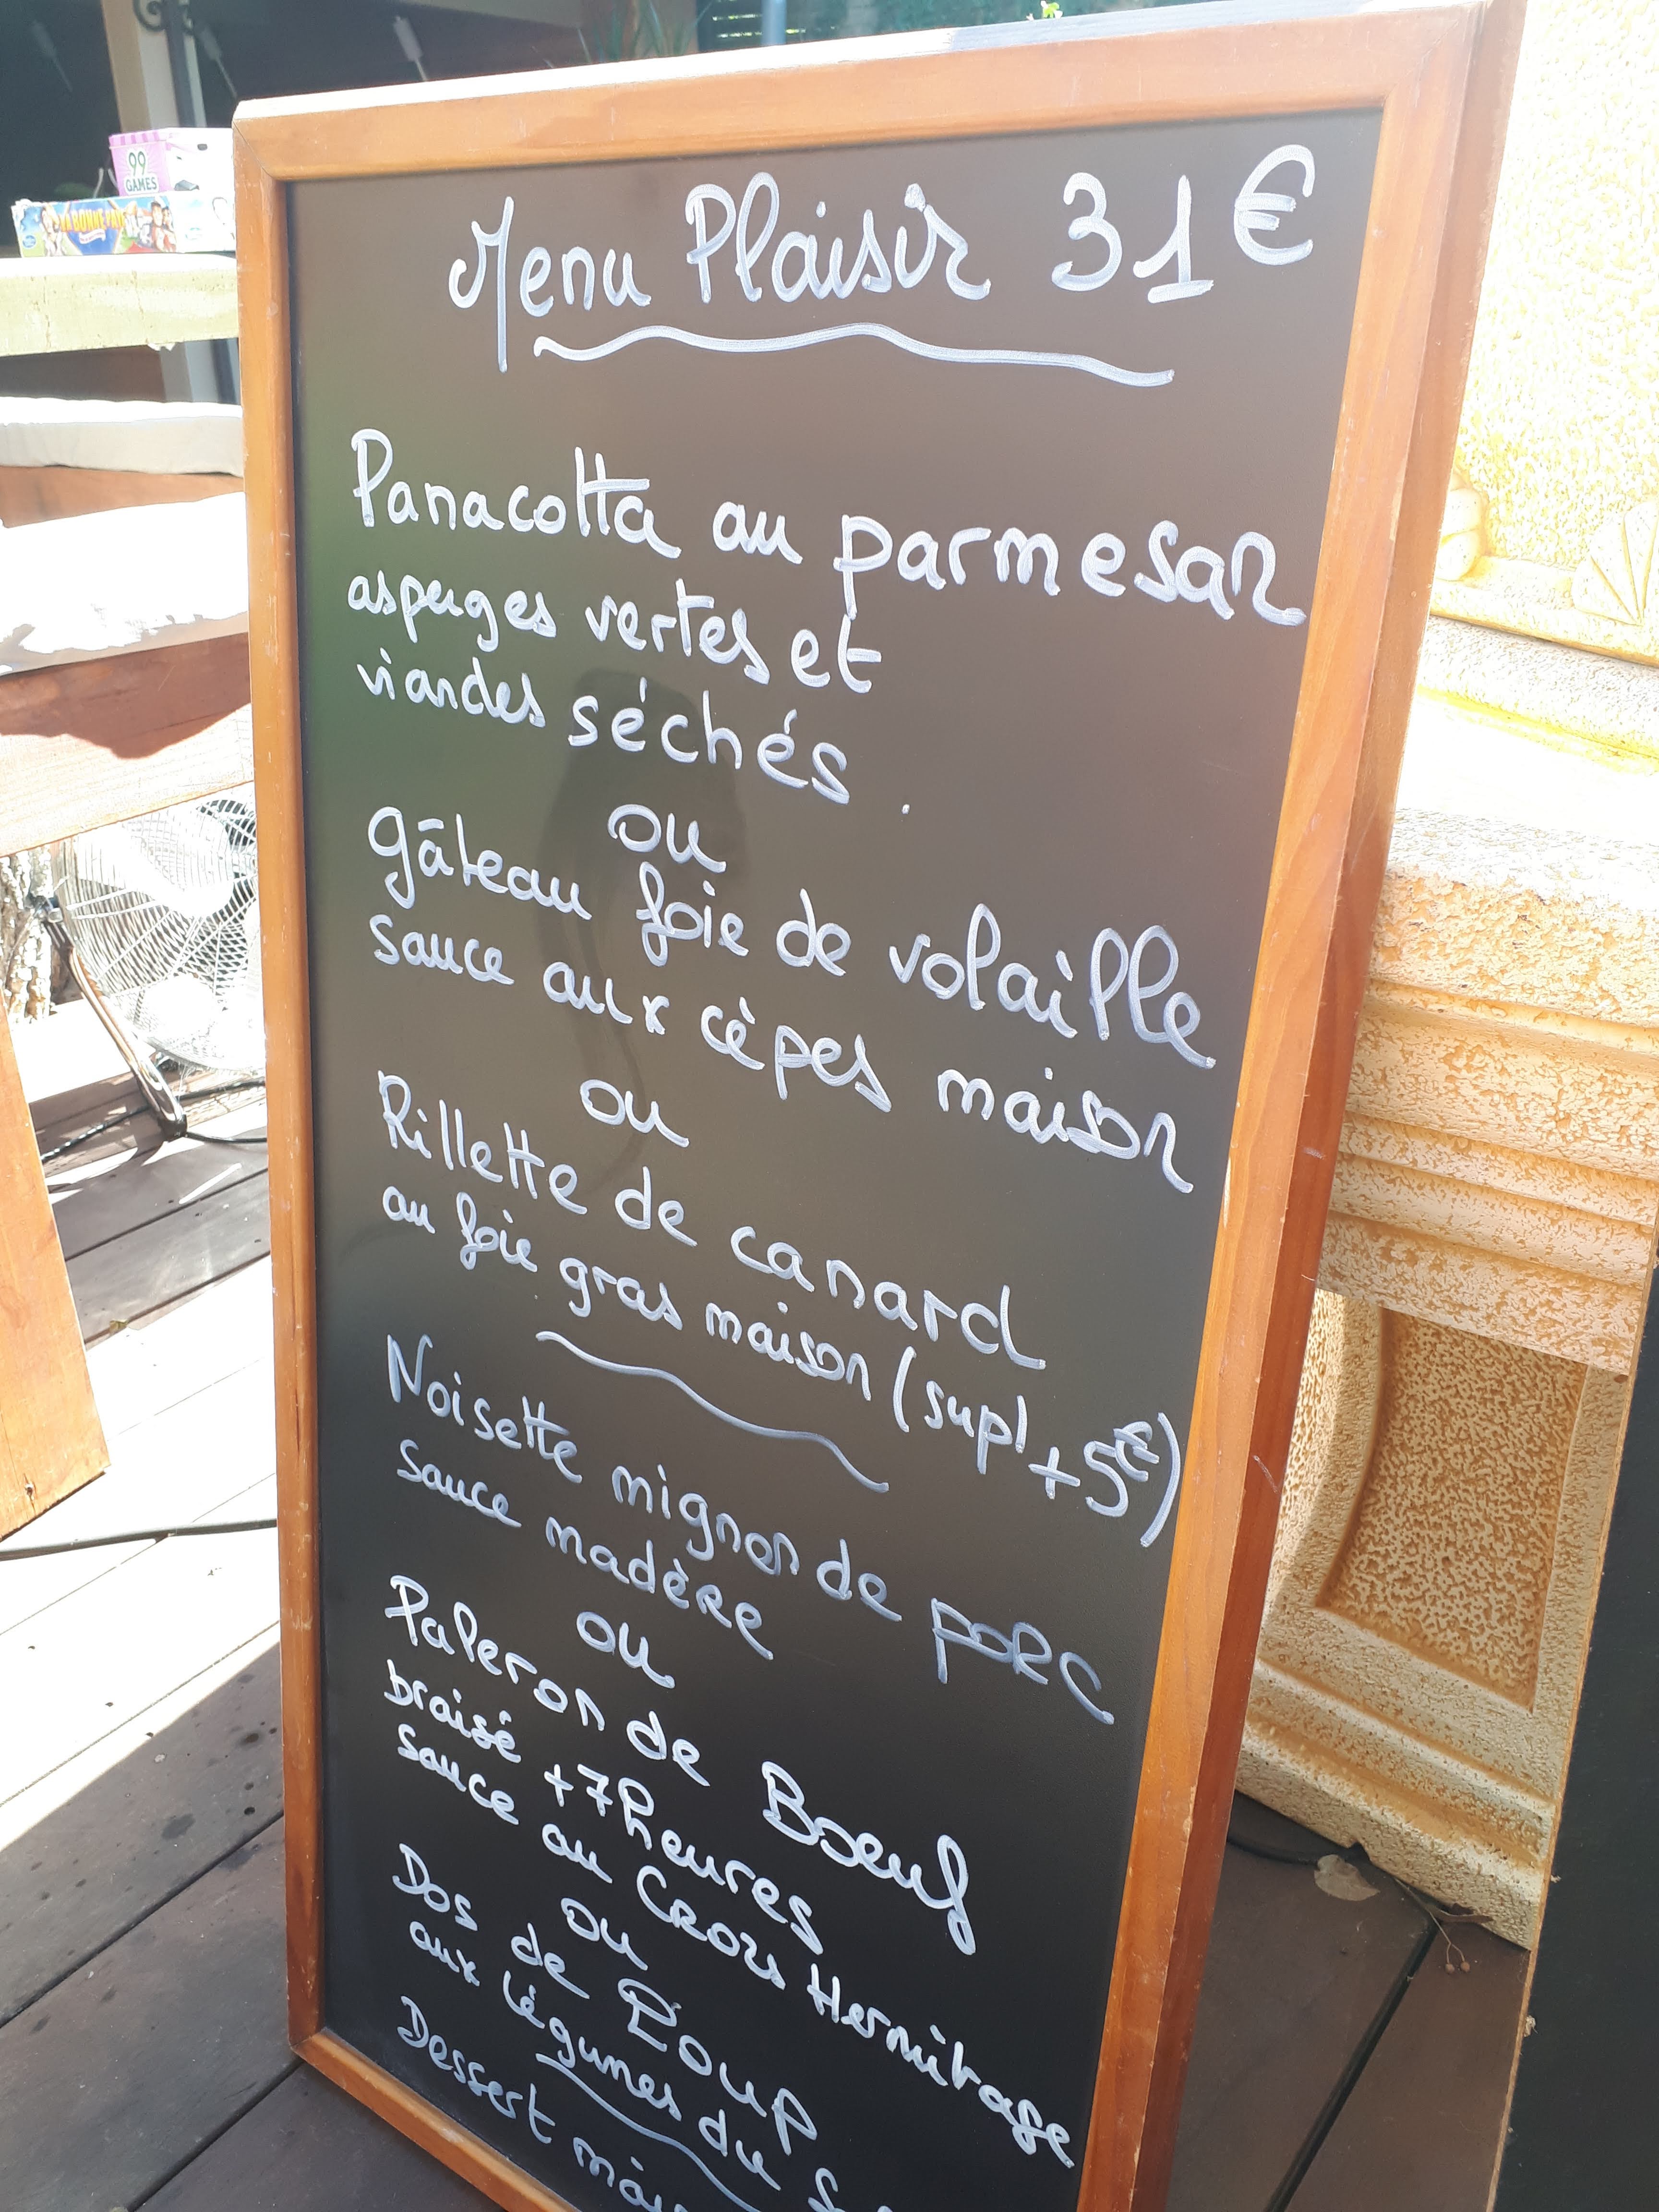 99
GAMES
LA BONNE PAYE
Menu Plaisir 31€
Panacotta au parmesan
asperges vertes et
viandes séchés.
ou
gâteau foie de volaille
sauce aux cèpes maison
ou
Rillette de canard
au foie gras maison (supl +5€)
Noisette mignon de porc
sauce madère
ou
Paleron de Boeuf
braisé +7heures
sauce au Crozes Hermitage
ou
Dos de Loup
aux légumes du
Dessert